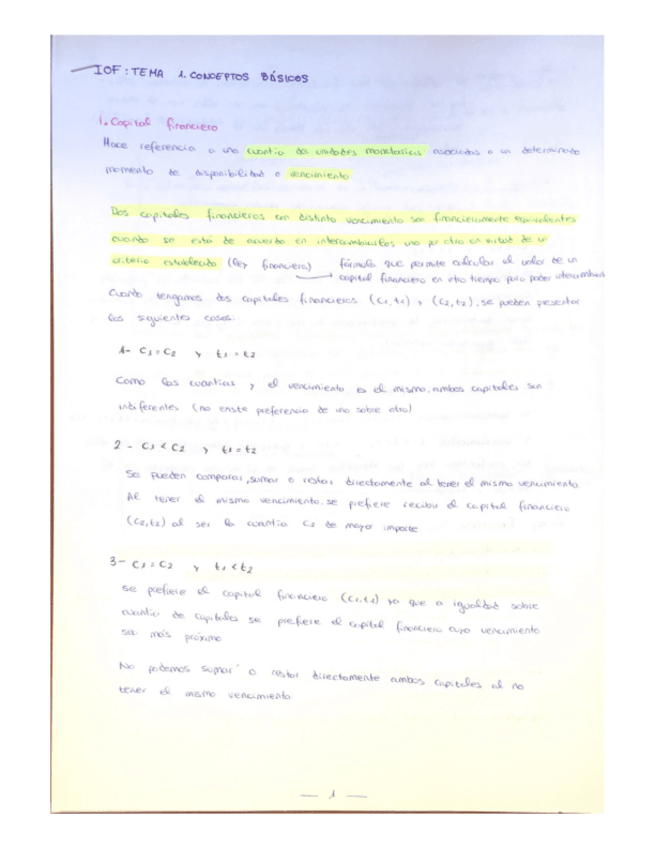 IOF: TEMA 1. CONCEPTOS BÁSICOS
1. Capital financiero
Hace referencia a una cuantía de unidades monetarias asociadas a un determinado
momento de disponibilidad o vencimiento
Dos capitales financieros con distinto vencimiento son financieramente equivalentes
cuando se está de acuerdo en intercambiarlos uno por otro en virtud de un
criterio establecido (ley financiera) → fórmula que permite calcular el valor de un
capital financiero en otro tiempo para poder intercambiarlo
Cuando tengamos dos capitales financieros (C1,t1) y (C2,t2), se pueden presentar
los siguientes casos:
1- C1 = C2 y t1 = t2
Como las cuantías y el vencimiento es el mismo, ambos capitales son
indiferentes (no existe preferencia de uno sobre otro)
2- C1 < C2 y t1 = t2
Se pueden comparar, sumar o restar directamente al tener el mismo vencimiento
Al tener el mismo vencimiento, se prefiere recibir el capital financiero
(C2,t2) al ser la cuantía C2 de mayor importe
3- C1 = C2 y t1 < t2
se prefiere el capital financiero (C1,t1) ya que a igualdad sobre
cuantía de capitales se prefiere el capital financiero cuyo vencimiento
sea más próximo
No podemos sumar o restar directamente ambos capitales al no
tener el mismo vencimiento.
— 1 —